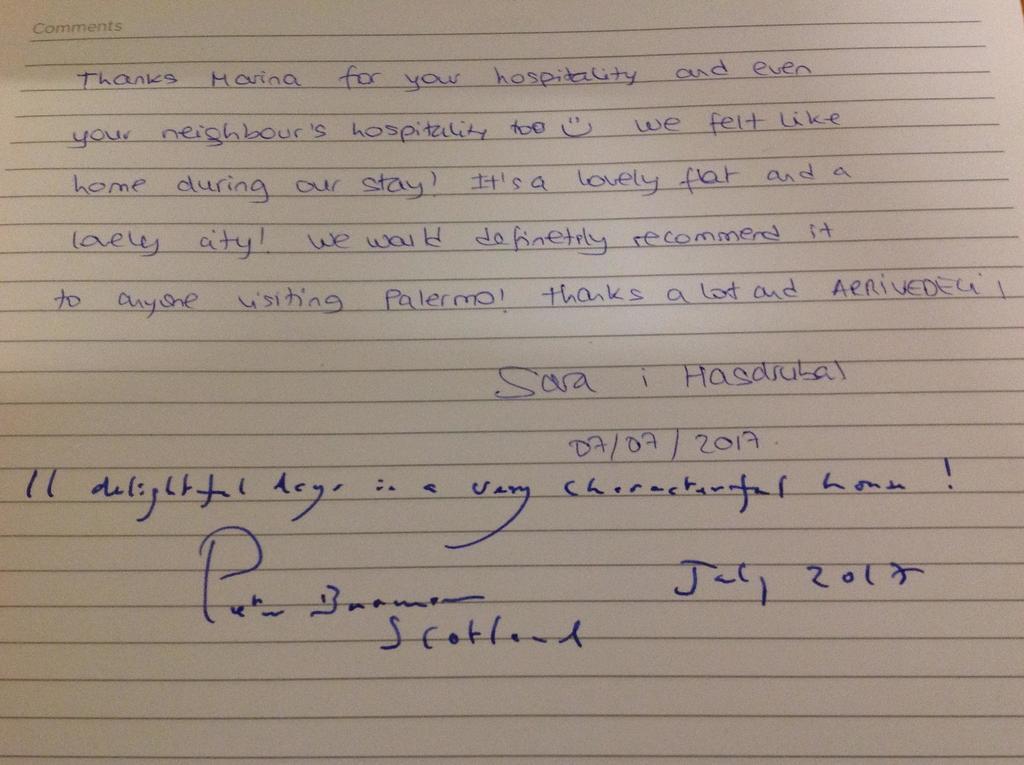 Comments
Thanks Marina for your hospitality and even
your neighbour's hospitality too we felt like
home during our stay! It's a lovely flat and a
lovely city! We would definetely recommend it
to anyone visiting Palermo! thanks a lot and ARRIVEDECI!
Sara i Hasdrubal
07/07/2017.
11 delightful days in a very characterful home!
Peter
July 2017
Scotland